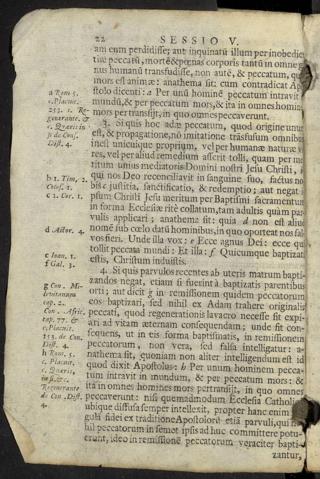 22 SESSIO V.
am eum perdidisse; aut inquinatũ illum per inobedien
tiæ peccatũ, mortẽ & pœnas corporis tantũ in omne g
nus humanũ transfudisse, non autẽ, & peccatum, qu
mors est animæ: anathema sit: cum contradicat Ap
stolo dicenti: a Per unũ hominẽ peccatum intravit
mundũ, & per peccatum mors, & ita in omnes homin
mors pertransijt, in quo omnes peccaverunt.
3. Si quis hoc adæ peccatum, quod origine unum
est, & propagatione, nõ imitatione trãsfusum omnibus
inest unicuique proprium, vel per humanæ naturæ vi
res, vel per aliud remedium asserit tolli, quam per me
ritum unius mediatoris Domini nostri Jesu Christi, i
qui nos Deo reconciliavit in sanguine suo, factus no
bis c justitia, sanctificatio, & redemptio; aut negat i
psum Christi Jesu meritum per Baptismi sacramentum
in forma Ecclesiæ ritè collatum, tam adultis quàm par
vulis applicari; anathema sit: quia d non est aliud
nomẽ sub cœlo datũ hominibus, in quo oporteat nos sal
vos fieri. Unde illa vox: e Ecce agnus Dei: ecce qui
tollit peccata mundi: Et illa: f Quicumque baptizati
estis, Christum induistis.
4. Si quis parvulos recentes ab uteris matrum bapti
zandos negat, etiam si fuerint à baptizatis parentibus
orti; aut dicit g in remissionem quidem peccatorum
eos baptizari, sed nihil ex Adam trahere originalis
peccati, quod regenerationis lavacro necesse sit expi
ari ad vitam æternam consequendam; unde sit con
sequens, ut in eis forma baptismatis, in remissionem
peccatorum, non vera, sed falsa intelligatur: a-
nathema sit, quoniam non aliter intelligendum est id
quod dixit Apostolus: h Per unum hominem pecca-
tum intravit in mundum, & per peccatum mors: &
ita in omnes homines mors pertransijt, in quo omnes
peccaverunt: nisi quemadmodum Ecclesia Catholica
ubique diffusa semper intellexit, propter hanc enim re
gulã fidei ex traditione Apostolorũ etiã parvuli, qui ni
hil peccatorum in semet ipsis adhuc committere potu-
erunt, ideo in remissionẽ peccatorum veraciter bapti-
zantur,
a Rom 5.
c. Placuit.
253. c. Re-
generante. &
c. Quæris in
fi de Cons.
Dist. 4.
b 1. Tim. 2.
Colos. 1.
c 1. Cor. 1.
d Actor. 4.
e Ioan. 1.
f Gal. 3.
g Con. Mi-
levitanum
cap. 2.
Con. Afric.
cap. 77. &
c. Placuit.
253. de Con.
Dist. 4.
h Rom. 5.
c. Placuit,
c. Quæris,
in fi. & c.
Regenerante
de Con. Dist.
4.